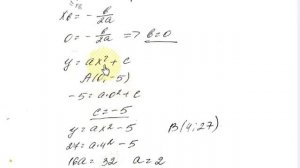 xв = - в/2a
0 = - в/2a => в=0
y = ax² + c
A(0; -5)
-5 = a·0² + c
c = -5
y = ax² - 5 B(4; 27)
27 = a·4² - 5
16a = 32 a = 2